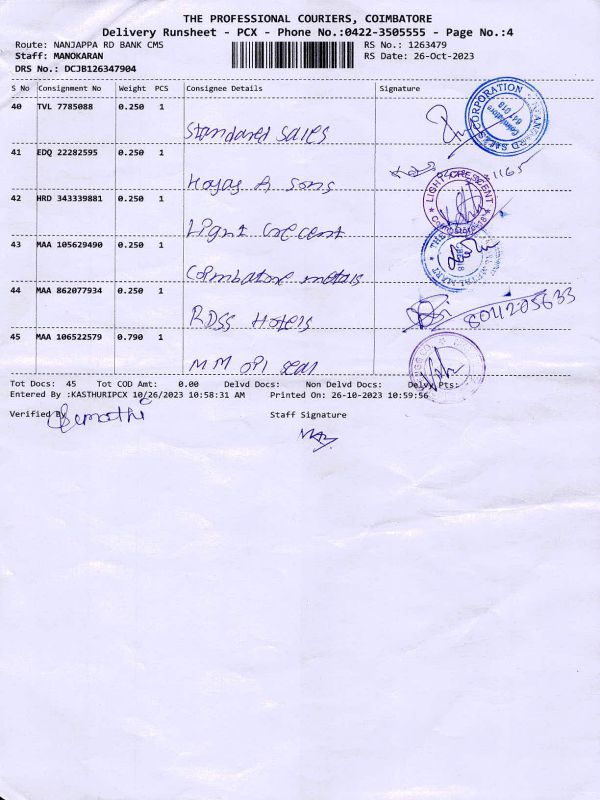 THE PROFESSIONAL COURIERS, COIMBATORE
Delivery Runsheet - PCX - Phone No.:0422-3505555 - Page No.:4
Route: NANJAPPA RD BANK CMS RS No.: 1263479
Staff: MANOKARAN RS Date: 26-Oct-2023
DRS No.: DCJB126347904
S No Consignment No Weight PCS Consignee Details Signature
40 TVL 7785088 0.250 1
Standared sales
CORPORATION
641 018
41 EDQ 22282595 0.250 1
& sons
1165
42 HRD 343339881 0.250 1
LIGHT CRESCENT
Light crecent
43 MAA 105629490 0.250 1
Coimbatore metals
44 MAA 862077934 0.250 1
RDSS Hotels
45 MAA 106522579 0.790 1
MM seal
Tot Docs: 45 Tot COD Amt: 0.00 Delvd Docs: Non Delvd Docs: Delvy Pts:
Entered By :KASTHURIPCX 10/26/2023 10:58:31 AM Printed On: 26-10-2023 10:59:56
Verified By Staff Signature